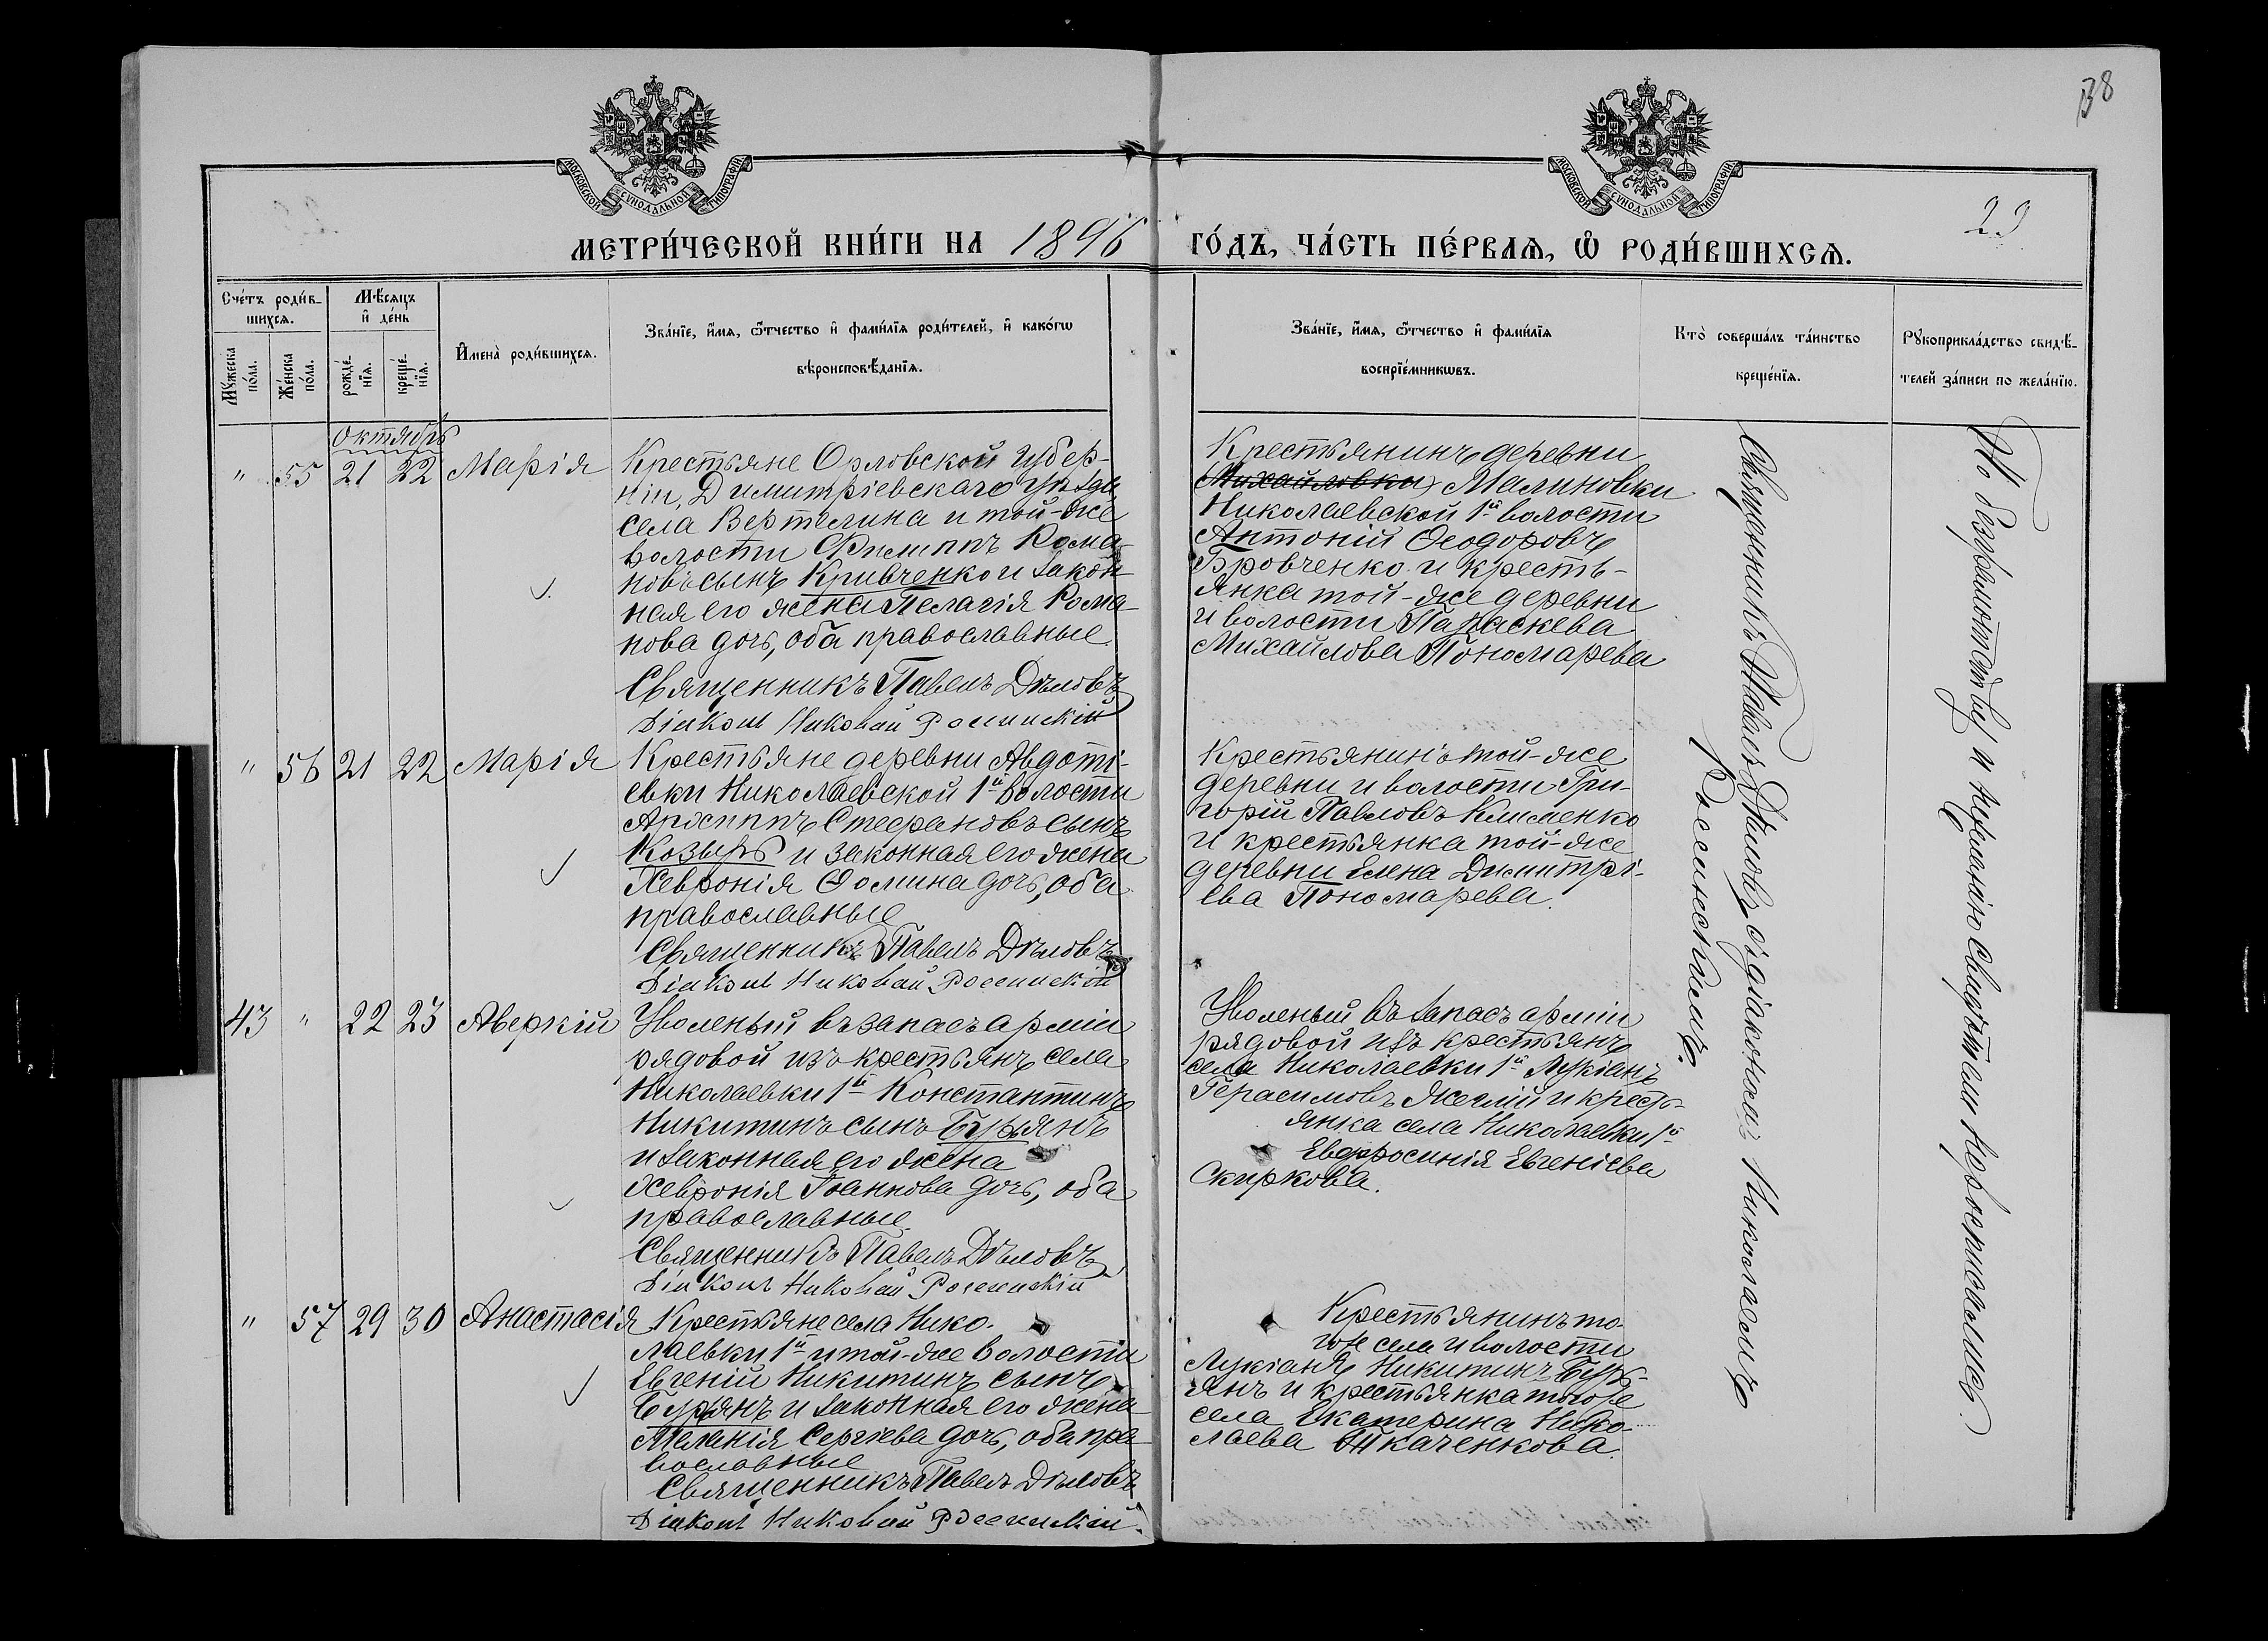 38
23
МОСКОВСКОЙ СѴНОДАЛЬНОЙ ТИПОГРАФІИ
МОСКОВСКОЙ СѴНОДАЛЬНОЙ ТИПОГРАФІИ
МЕТРИ́ЧЕСКОЙ КНИ́ГИ НА 1896 ГО́ДЪ, ЧА́СТЬ ПЕ́РВАѦ, Ѡ҆ РОДИ́ВШИХСѦ.
Сче́тъ роди́в-
шихсѧ.
Мѣ́сѧцъ
и҆ де́нь
Мꙋ́жеска
по́ла.
Же́нска
по́ла.
рожде́-
нїѧ.
креще́-
нїѧ.
И҆мена̀ роди́вшихсѧ.
Зва́нїе, и҆́мѧ, ѻ҆́тчество и҆ фами́лїѧ роди́телей, и҆ како́гѡ
вѣроисповѣ́данїѧ.
Зва́нїе, и҆́мѧ, ѻ҆́тчество и҆ фами́лїѧ
воспрїе́мникѡвъ.
Кто̀ соверша́лъ та́инство
креще́нїѧ.
Рꙋкоприкла́дство свидѣ́-
телей за́писи по жела́нїю.
Октябрь
" 55 21 22 Марія
Крестьяне Орловской губер-
ніи, Димитріевскаго уѣзда,
села Вертелина и той-же
волости Филиппъ Рома-
новъ сынъ Кривченко и закон-
ная его жена Пелагія Рома-
нова дочь, оба православные.
Священникъ Павелъ Дѣловъ
Діаконъ Николай Россинскій
Крестьянинъ деревни
Михайловки Малиновки
Николаевской 1й волости
Антоній Ѳеодоровъ
Бровченко и кресть-
янка той-же деревни
и волости Параскева
Михайлова Пономарева
" 56 21 22 Марія
Крестьяне деревни Авдоті-
евки Николаевской 1й волости
Архиппъ Стефановъ сынъ
Козырь и законная его жена
Хевронія Ѳомина дочь, оба
православные
Священникъ Павелъ Дѣловъ
Діаконъ Николай Россинскій
Крестьянинъ той-же
деревни и волости Гри-
горій Павловъ Клименко
и крестьянка той-же
деревни Елена Димитрі-
ева Пономарева.
43 " 22 23 Аверкій
Уволеный въ запасъ арміи
рядовой изъ крестьянъ села
Николаевки 1й Константинъ
Никитинъ сынъ Бурьянъ
и законная его жена
Хевронія Іоаннова дочь, оба
православные.
Священникъ Павелъ Дѣловъ
Діаконъ Николай Россинскій
Уволеный въ запасъ арміи
рядовой изъ крестьянъ
села Николаевки 1й Лукіанъ
Герасимовъ и крест-
янка села Николаевки 1й
Евфросинія Евгеніева
Скиркова.
" 57 29 30 Анастасія
Крестьяне села Нико-
лаевки 1й и той-же волости
Евгеній Никитинъ сынъ
Бурьянъ и законная его жена
Меланія Сергіева дочь, оба пра-
вославные
Священникъ Павелъ Дѣловъ
Діаконъ Николай Россинскій.
Крестьянинъ то-
гоже села и волости
Лукіанъ Никитинъ Бурь-
янъ и крестьянка тогоже
села Екатерина Нико-
лаева Ткаченкова.
Священникъ Павелъ Дѣловъ съ діакономъ Николаемъ
Россинскимъ.
По безграмотству и неумѣнію свидѣтели не росписались.